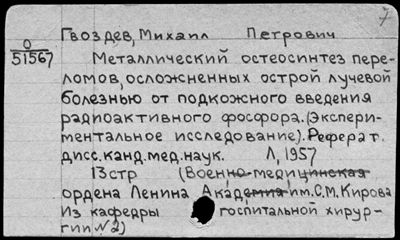 7
Гвоздев, Михаил Петрович
О
51567
Металлический остеосинтез пере-
ломов, осложненных острой лучевой
болезнью от подкожного введения
радиоактивного фосфора. (Экспери-
ментальное исследование). Реферат.
дисс. канд. мед. наук. Л, 1957
13стр (Военно-медицинская
ордена Ленина Академия им. С.М. Кирова
Из кафедры госпитальной хирур-
гии №2)